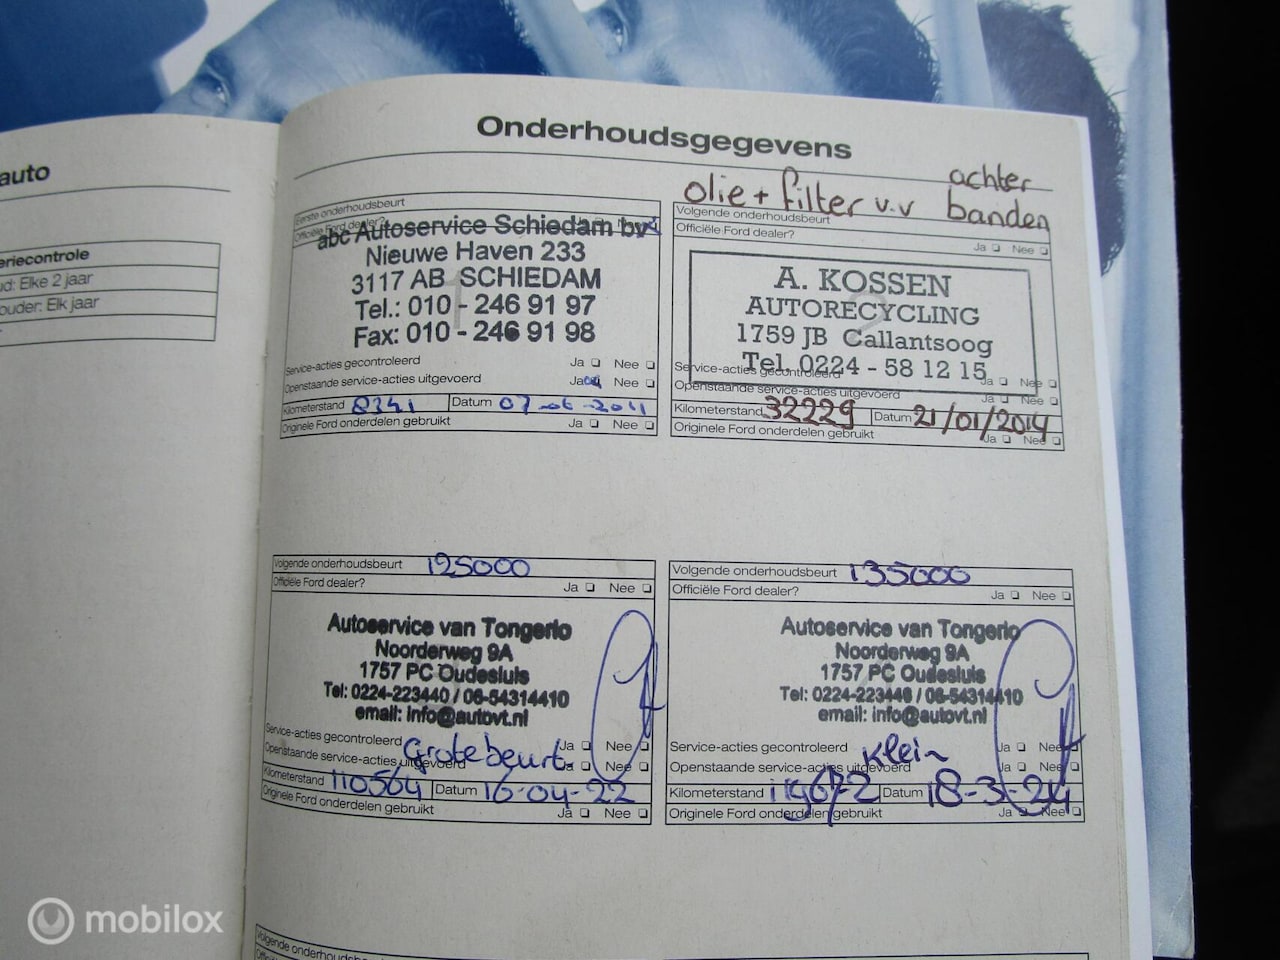 Onderhoudsgegevens
auto
eriecontrole
ud: Elke 2 jaar
ouder: Elk jaar
Eerste onderhoudsbeurt
Officiële Ford dealer?
abc Autoservice Schiedam bv
Nieuwe Haven 233
3117 AB SCHIEDAM
Tel.: 010 - 246 91 97
Fax: 010 - 246 91 98
Service-acties gecontroleerd Ja Nee
Openstaande service-acties uitgevoerd Ja Nee
Kilometerstand 8341 Datum 07-06-2011
Originele Ford onderdelen gebruikt Ja Nee
olie + filter v.v achter banden
Volgende onderhoudsbeurt
Officiële Ford dealer? Ja Nee
A. KOSSEN
AUTORECYCLING
1759 JB Callantsoog
Tel. 0224 - 58 12 15
Service-acties gecontroleerd Ja Nee
Openstaande service-acties uitgevoerd Ja Nee
Kilometerstand 32229 Datum 21/01/2014
Originele Ford onderdelen gebruikt Ja Nee
Volgende onderhoudsbeurt 125000
Officiële Ford dealer? Ja Nee
Autoservice van Tongerlo
Noorderweg 9A
1757 PC Oudesluis
Tel: 0224-223440 / 06-54314410
email: info@autovt.nl
Service-acties gecontroleerd Ja Nee
Grote beurt.
Openstaande service-acties uitgevoerd Ja Nee
Kilometerstand 110564 Datum 16-04-22
Originele Ford onderdelen gebruikt Ja Nee
Volgende onderhoudsbeurt 135000
Officiële Ford dealer? Ja Nee
Autoservice van Tongerlo
Noorderweg 9A
1757 PC Oudesluis
Tel: 0224-223440 / 06-54314410
email: info@autovt.nl
Service-acties gecontroleerd Ja Nee
Klein
Openstaande service-acties uitgevoerd Ja Nee
Kilometerstand Datum 18-3-24
Originele Ford onderdelen gebruikt Ja Nee
Volgende onderhoudsbeurt
mobilox